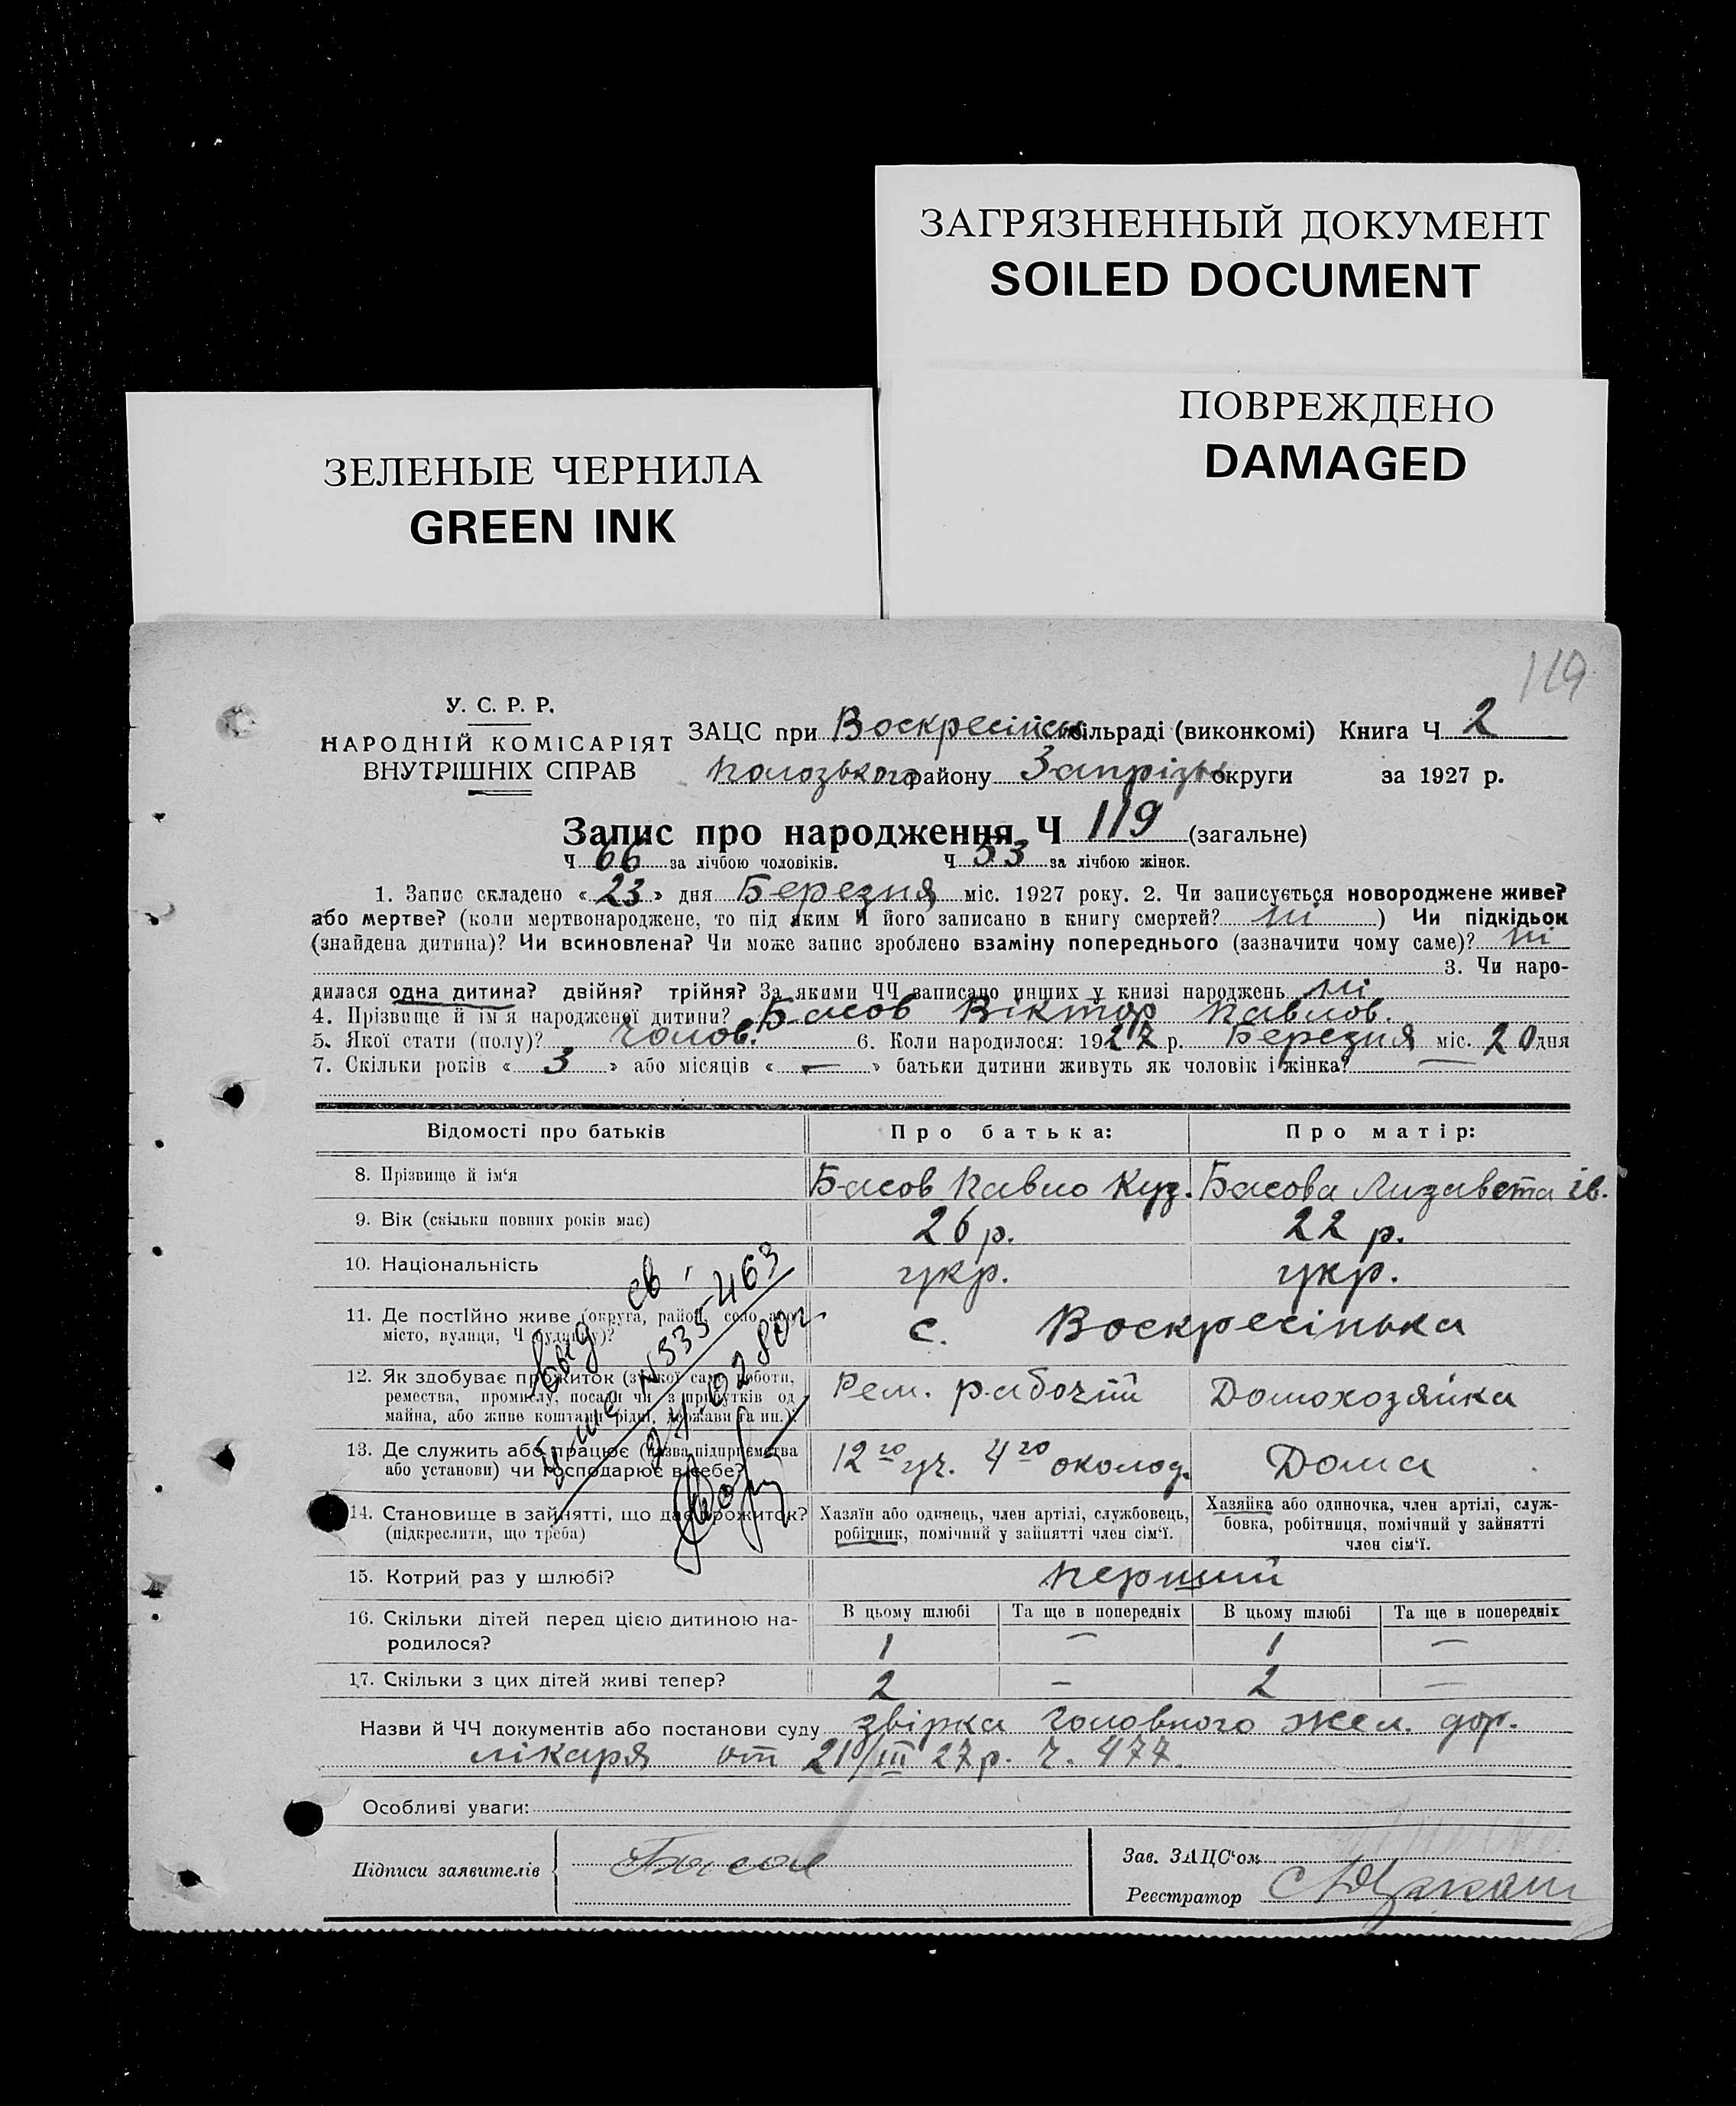 ЗАГРЯЗНЕННЫЙ ДОКУМЕНТ
SOILED DOCUMENT
ПОВРЕЖДЕНО
DAMAGED
ЗЕЛЕНЫЕ ЧЕРНИЛА
GREEN INK
119
У. С. Р. Р.
НАРОДНІЙ КОМІСАРІЯТ
ВНУТРІШНІХ СПРАВ
ЗАЦС при Воскресінськ сільраді (виконкомі) Книга Ч 2
Полозького району Запрізьк округи за 1927 р.
Запис про народження Ч 119 (загальне)
Ч 66 за лічбою чоловіків. Ч 53 за лічбою жінок.
1. Запис складено «23» дня Березня міс. 1927 року. 2. Чи записується новороджене живе?
або мертве? (коли мертвонароджене, то під яким Ч його записано в книгу смертей? ні) Чи підкідьок
(знайдена дитина)? Чи всиновлена? Чи може запис зроблено взаміну попереднього (зазначити чому саме)? ні
3. Чи наро-
дилася одна дитина? двійня? трійня? За якими ЧЧ записано инших у книзі народжень ні
4. Прізвище й ім'я народженої дитини? Басов Віктор Павлов.
5. Якої стати (полу)? Чолов. 6. Коли народилося: 1927 р. Березня міс. 20 дня
7. Скільки років «3» або місяців «—» батьки дитини живуть як чоловік і жінка? —
Відомості про батьків Про батька: Про матір:
8. Прізвище й ім'я Басов Павло Куз. Басова Лизавета Ів.
9. Вік (скільки повних років має) 26 р. 22 р.
10. Національність укр. укр.
11. Де постійно живе (округа, район, село або
місто, вулиця, Ч будинку)? с. Воскресінька
12. Як здобуває прожиток (з якої саме роботи,
ремества, промислу, посади чи з прибутків од
майна, або живе коштами рідні, держави та ин.)? Рем. рабочий Домохозяйка
13. Де служить або працює (назва підприємства
або установи) чи господарює в себе? 12го уч. 4го околод. Дома
14. Становище в зайнятті, що дає прожиток?
(підкреслити, що треба)
Хазяїн або одинець, член артілі, службовець,
робітник, помічний у зайнятті член сім'ї.
Хазяйка або одиночка, член артілі, служ-
бовка, робітниця, помічний у зайнятті
член сім'ї.
15. Котрий раз у шлюбі? перший
16. Скільки дітей перед цією дитиною на-
родилося?
В цьому шлюбі Та ще в попередніх В цьому шлюбі Та ще в попередніх
1 — 1 —
17. Скільки з цих дітей живі тепер? 2 — 2 —
N 335-463
Назви й ЧЧ документів або постанови суду звірка головного жел. дор.
лікаря от 21/III 27 р. ч. 477.
Особливі уваги:
Підписи заявителів Басов
Зав. ЗАЦС'ом
Реєстратор